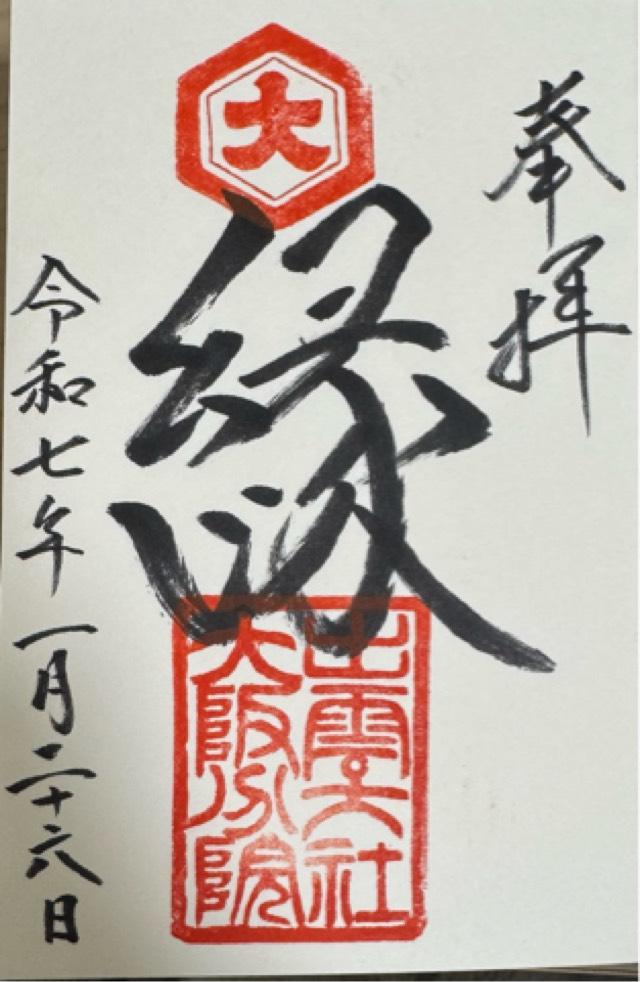 奉拝
大
縁
出雲大社
大阪分院
令和七年一月二十六日